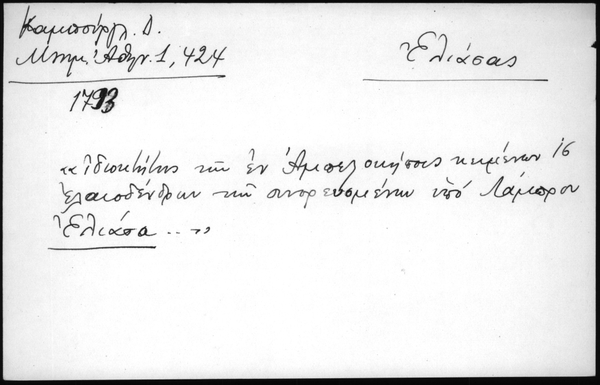 Καμπούργλ. Δ.
Μνημ. Ἀθην. 1, 424
Ἐλιάσας
1793
«ἰδιοκτήτης καὶ ἐν Ἀμπελοκήποις κειμένων 16
ἐλαιοδένδρων καὶ συνορευομένων ὑπὸ Λάμπρου
Ἐλιάσα ...»